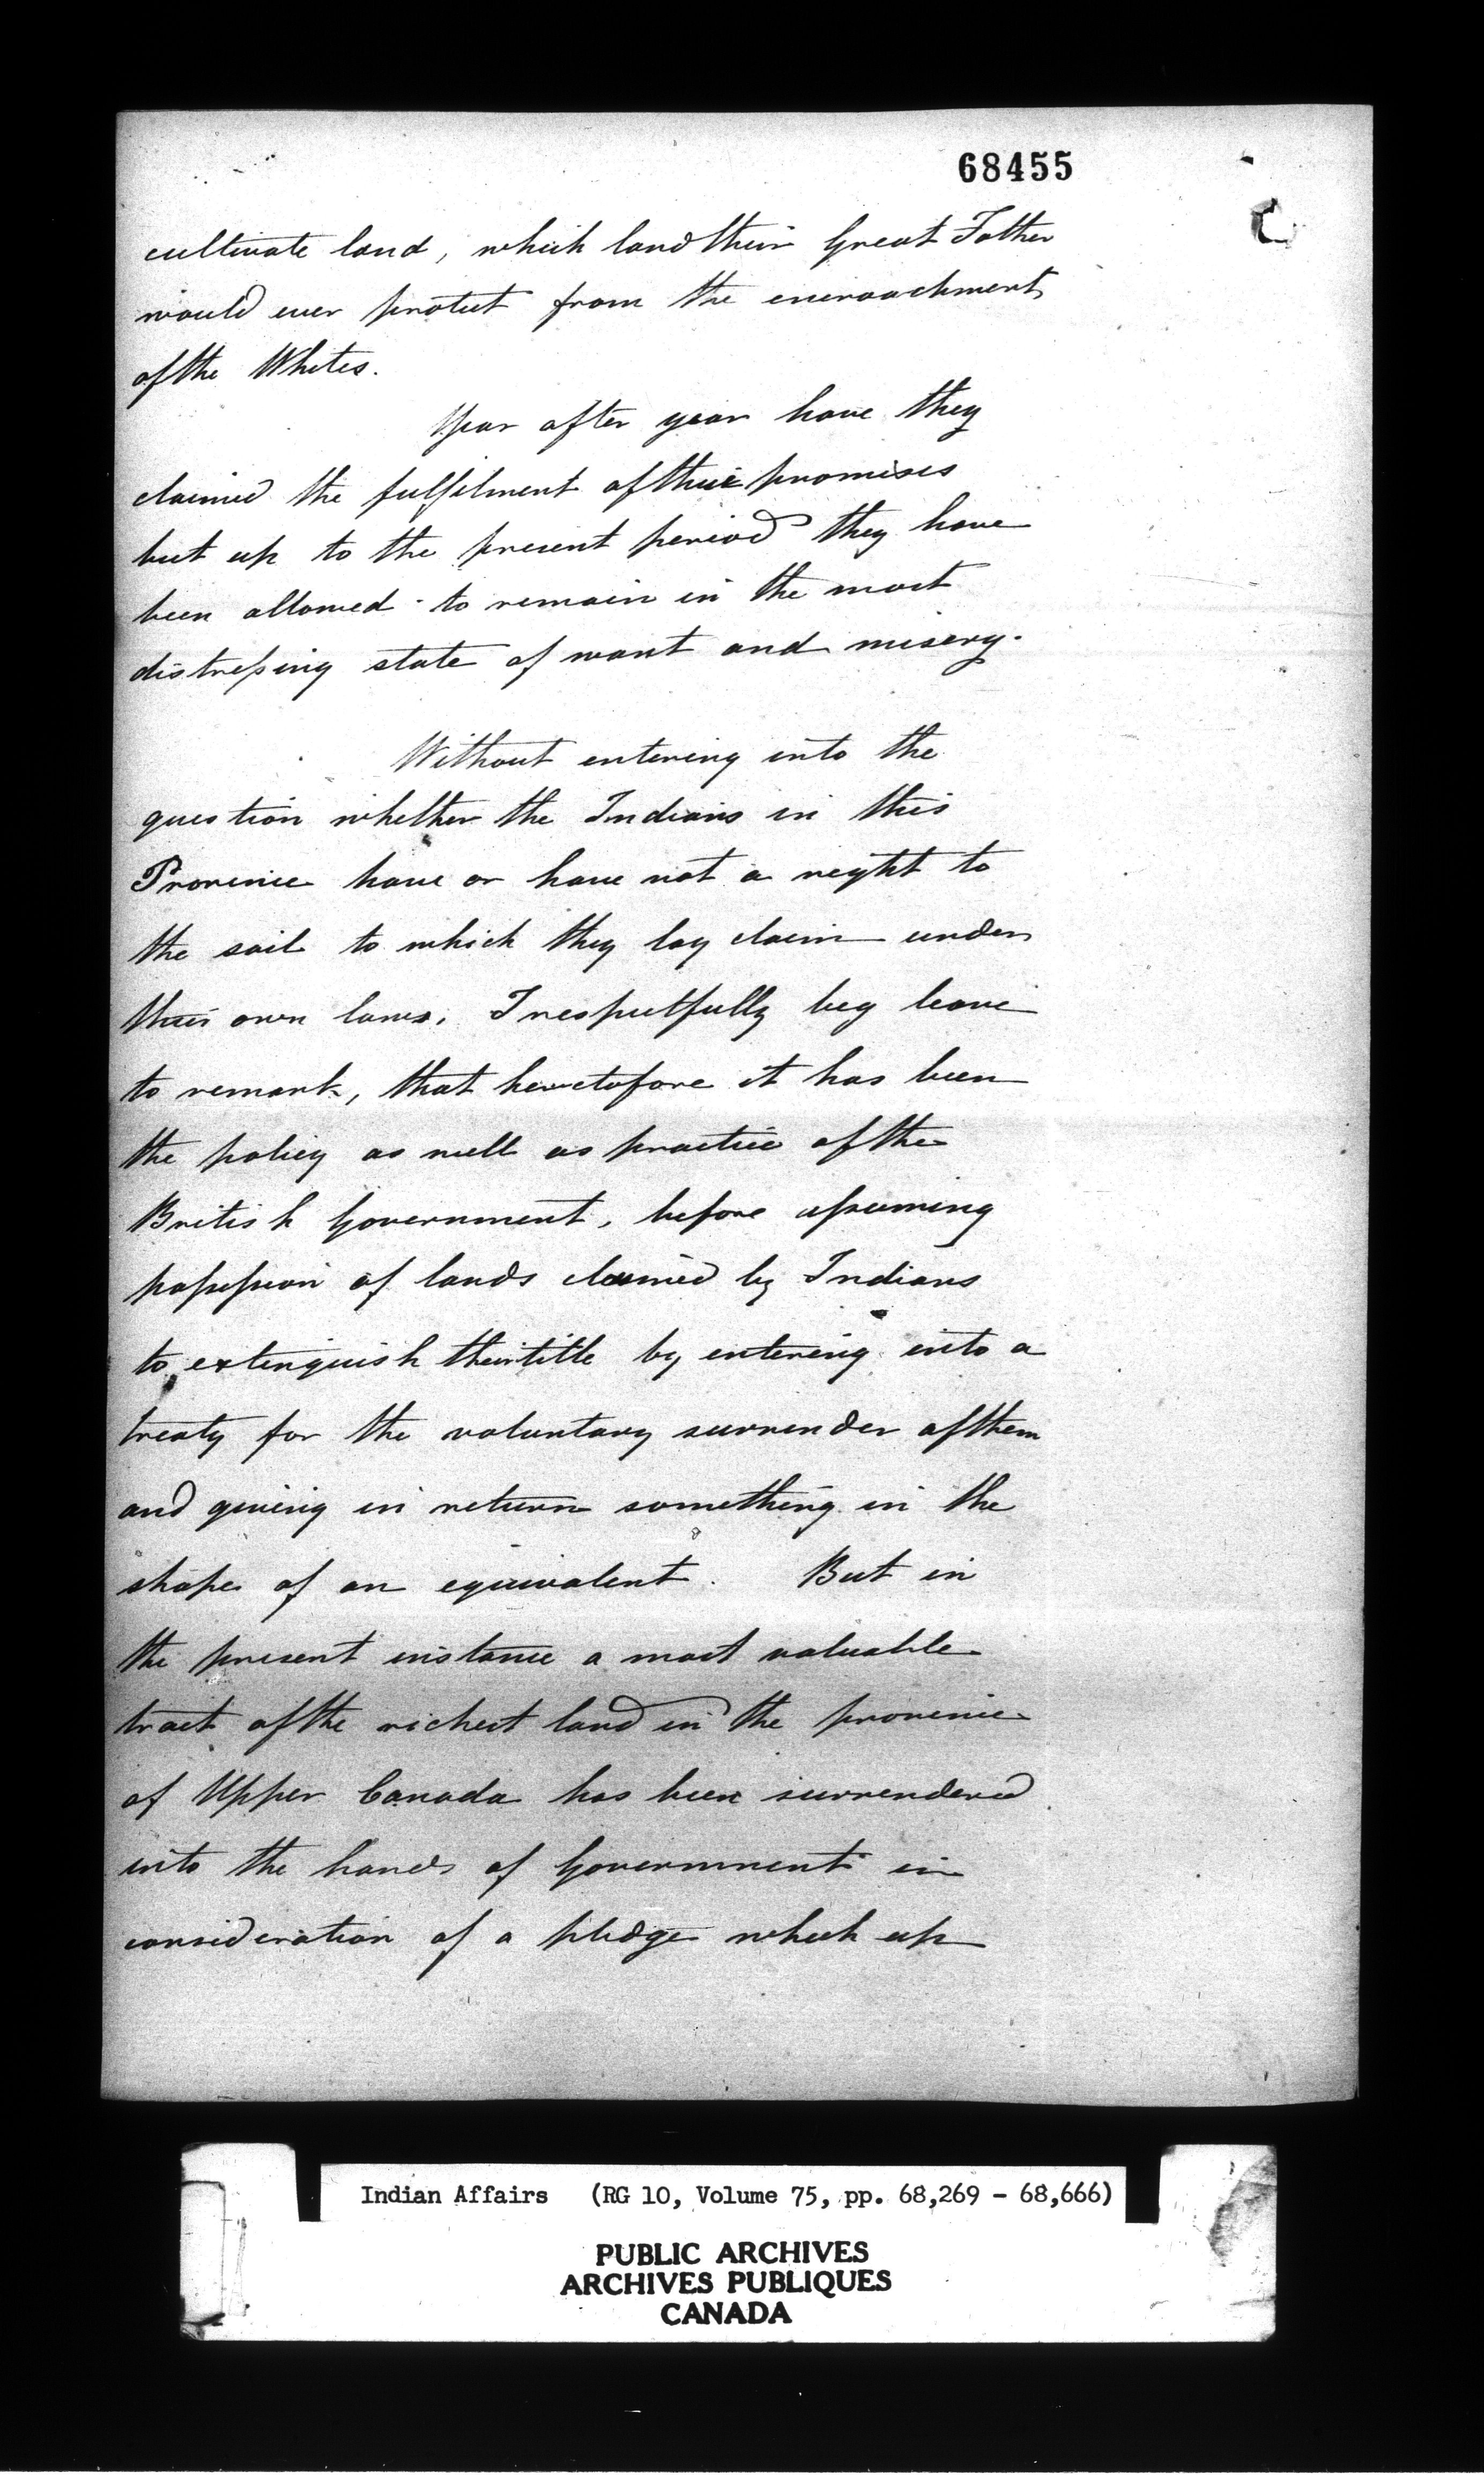 68455
cultivate land, which land their Great Father
would ever protect from the encroachment
of the Whites.
Year after year have they
claimed the fulfilment of these promises
but up to the present period they have
been allowed to remain in the most
distressing state of want and misery.
Without entering into the
question whether the Indians in this
Province have or have not a right to
the soil to which they lay claim under
their own laws, I respectfully beg leave
to remark, that heretofore it has been
the policy as well as practice of the
British Government, before assuming
possession of lands claimed by Indians
to extinguish their title by entering into a
treaty for the voluntary surrender of them
and giving in return something in the
shape of an equivalent. But in
the present instance a most valuable
tract of the richest land in the province
of Upper Canada has been surrendered
into the hands of Government in
consideration of a pledge which up
Indian Affairs (RG 10, Volume 75, pp. 68,269 - 68,666)
PUBLIC ARCHIVES
ARCHIVES PUBLIQUES
CANADA